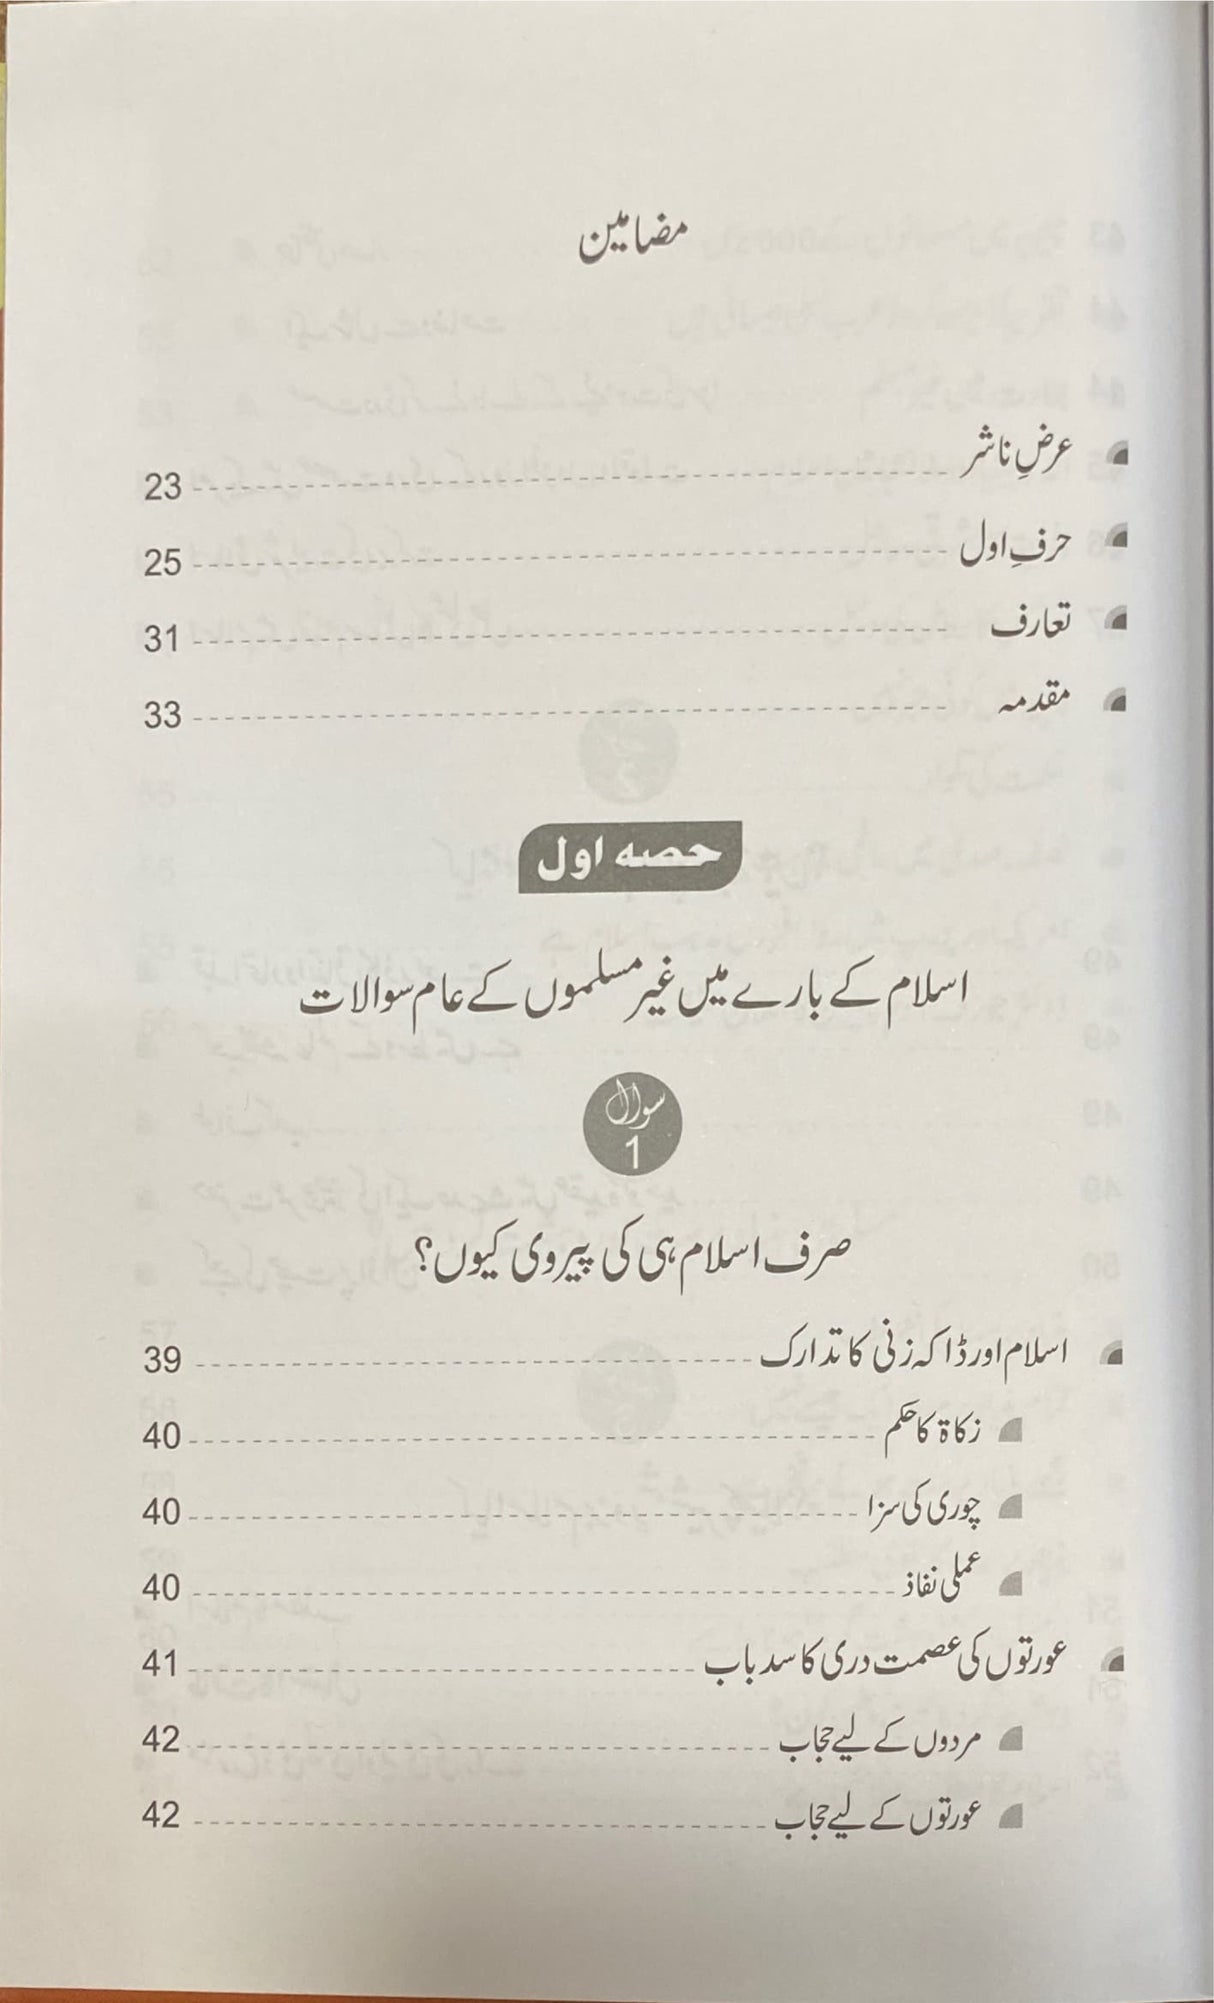 مضامین
عرضِ ناشر 23
حرفِ اول 25
تعارف 31
مقدمہ 33
حصہ اول
اسلام کے بارے میں غیر مسلموں کے عام سوالات
سوال
1
صرف اسلام ہی کی پیروی کیوں؟
اسلام اور ڈاکہ زنی کا تدارک 39
زکاۃ کا حکم 40
چوری کی سزا 40
عملی نفاذ 40
عورتوں کی عصمت دری کا سدباب 41
مردوں کے لیے حجاب 42
عورتوں کے لیے حجاب 42